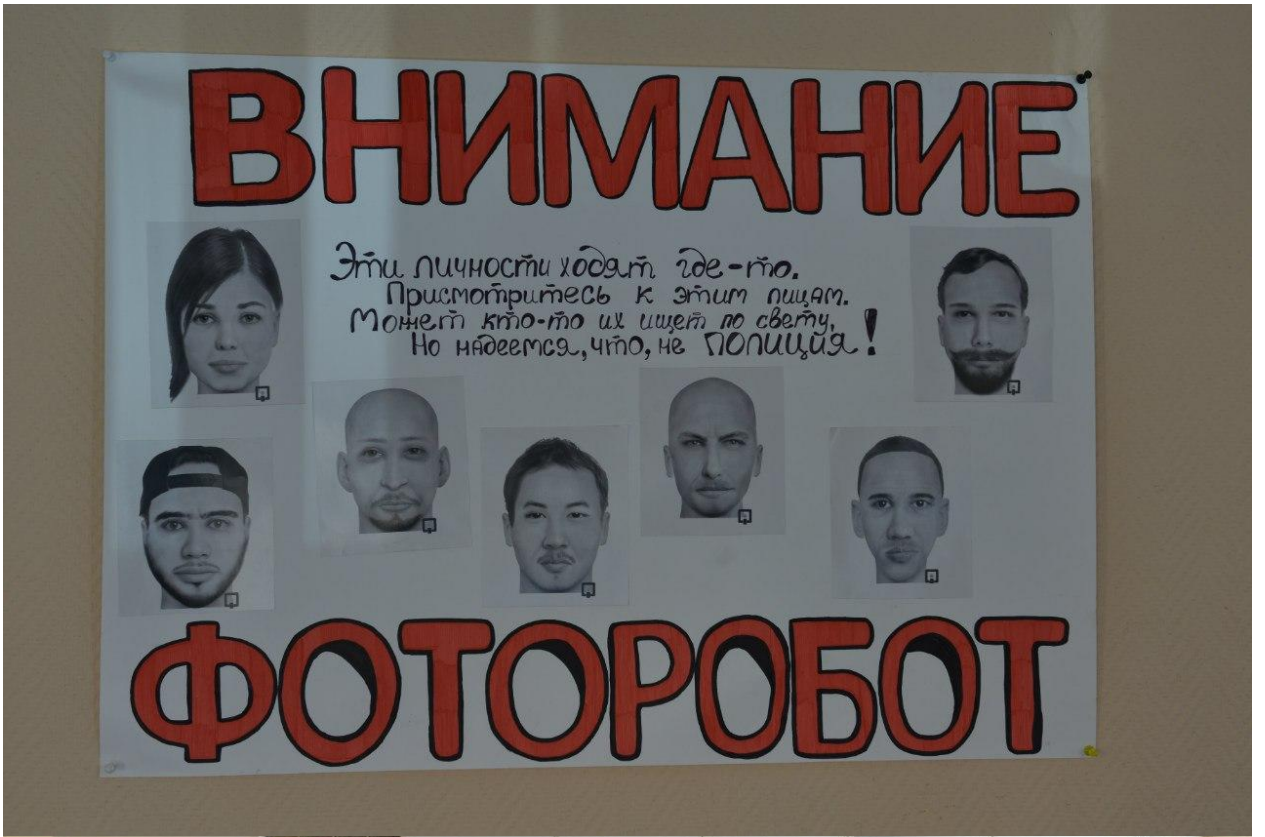 ВНИМАНИЕ
Эти личности ходят где-то.
Присмотритесь к этим лицам.
Может кто-то их ищет по свету,
Но надеемся, что, не ПОЛИЦИЯ!
ФОТОРОБОТ